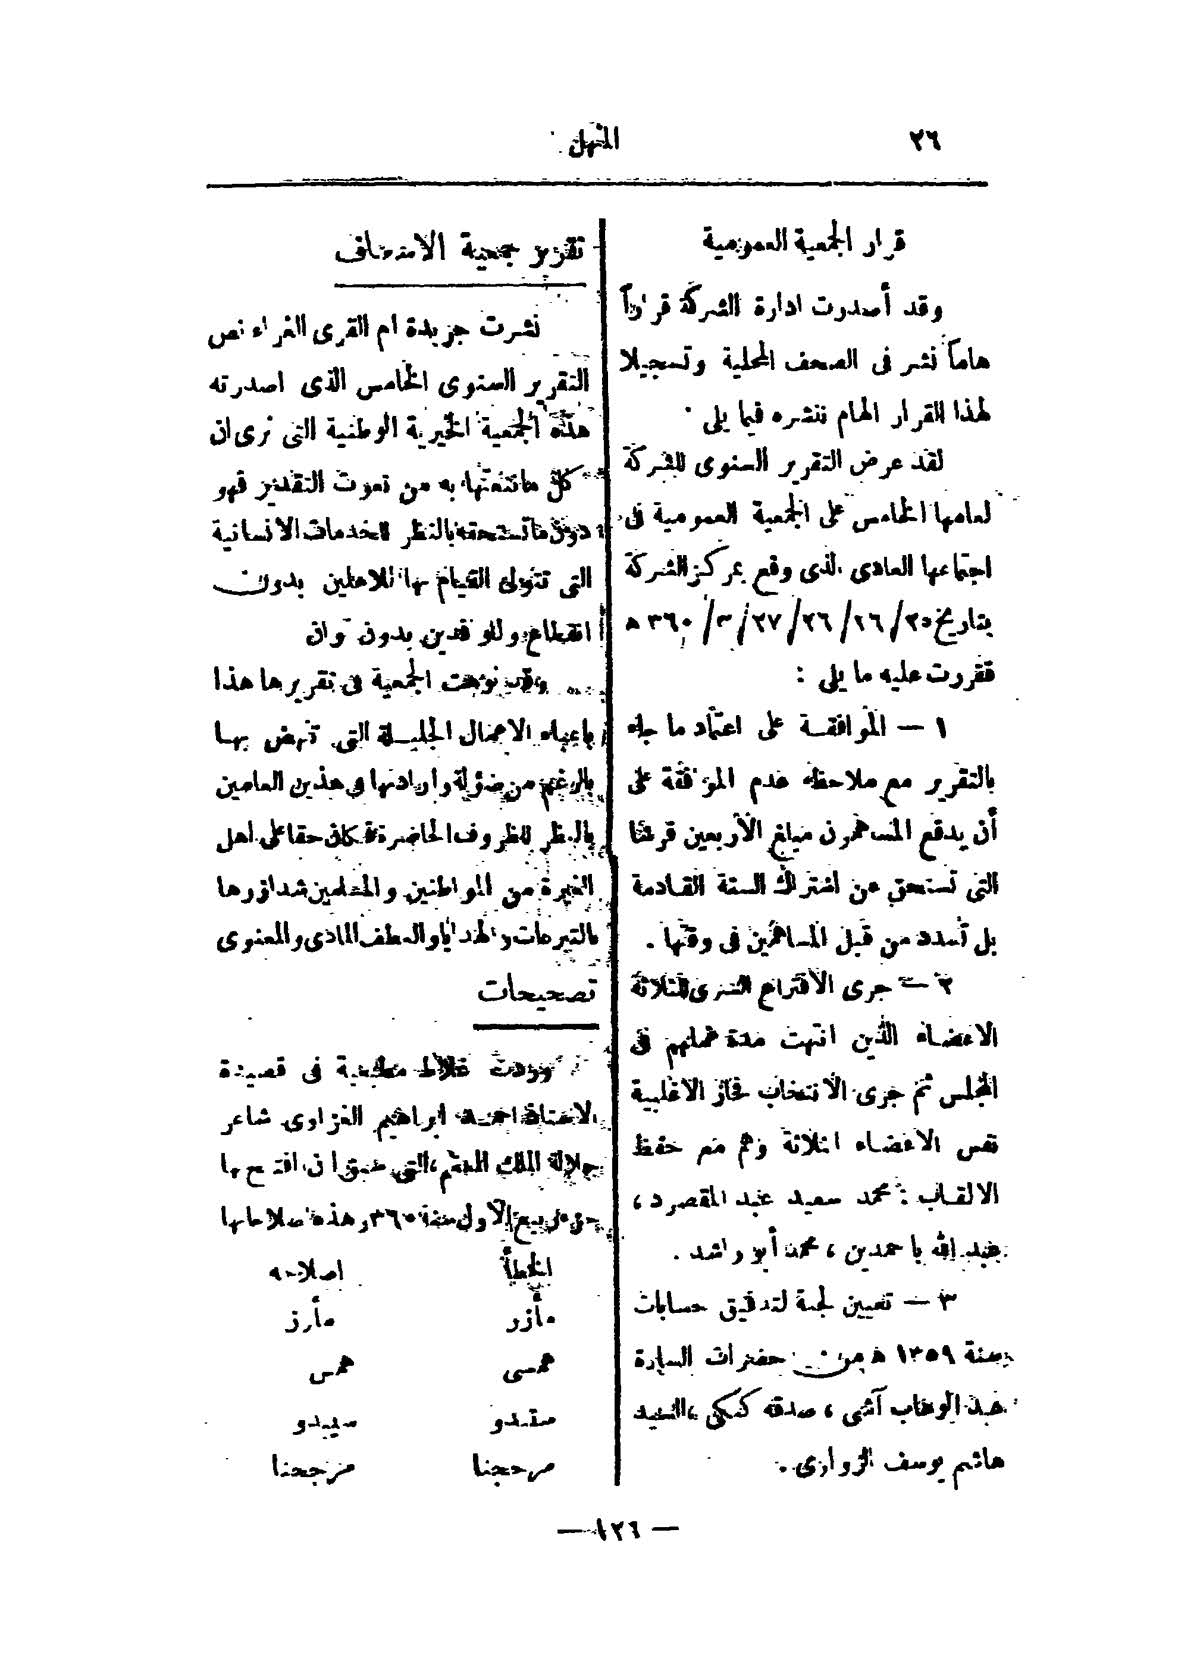 ٢٦
المنهل
قرار الجمعية العمومية
وقد أصدرت ادارة الشركة قراراً
هاماً نشر فى الصحف المحلية وتسجيلا
لهذا القرار الهام ننشره فيما يلى
لقد عرض التقرير السنوى للشركة
لعامها الخامس على الجمعية العمومية فى
اجتماعها العادى الذى وقع بمركز الشركة
بتاريخ ٢٥/ ٢٦/ ٢٦/ ٢٧/ ٣/ ٣٦٠ ه
فقررت عليه ما يلى :
١ — الموافقة على اعتماد ما جاء
بالتقرير مع ملاحظة عدم الموافقة على
أن يدفع المساهمون مبلغ الأربعين قرشا
التى تستحق عن اشتراك السنة القادمة
بل تسدد من قبل المساهمين فى وقتها .
٢ — جرى الاقتراع السرى للثلاثة
الاعضاء الذين انتهت مدة عملهم فى
المجلس ثم جرى الانتخاب فحاز الاغلبية
نفس الاعضاء الثلاثة وهم مع حفظ
الالقاب : محمد سعيد عبد المقصود ،
عبد الله با حمدين ، محمد أبو راشد .
٣ — تعيين لجنة لتدقيق حسابات
سنة ١٣٥٩ ه من حضرات السادة
عبد الوهاب آشى ، صدقه كمكى ، السيد
هاشم يوسف الزواوى .
تقرير جمعية الاسعاف
نشرت جريدة ام القرى الغراء نص
التقرير السنوى الخامس الذى اصدرته
هذه الجمعية الخيرية الوطنية التى نرى ان
كل ما ننعتها به من نعوت التقدير فهو
دون ما تستحقه بالنظر للخدمات الانسانية
التى تتولى القيام بها للاهلين بدون
انقطاع وللوافدين بدون توان
وقد نوهت الجمعية فى تقريرها هذا
باعباء الاعمال الجليلة التى تنهض بها
بالرغم من ضؤلة وارداتها فى هذين العامين
بالنظر للظروف الحاضرة فكان حقا على اهل
الغيرة من المواطنين والمسلمين شد ازرها
بالتبرعات والهدايا والعطف المادى والمعنوى
تصحيحات
وردت غلاط مطبعية فى قصيدة
الاستاذ احمد ابراهيم الغزاوى شاعر
جلالة الملك المعظم ، التى سبق ان افتتح بها
جزء ربيع الاول سنة ٣٦٠ وهذه اصلاحاتها
الخطأ اصلاحه
مأزر مأرز
همسى همس
سيبدو
مرحجنا مرجحنا
— ١٢٦ —